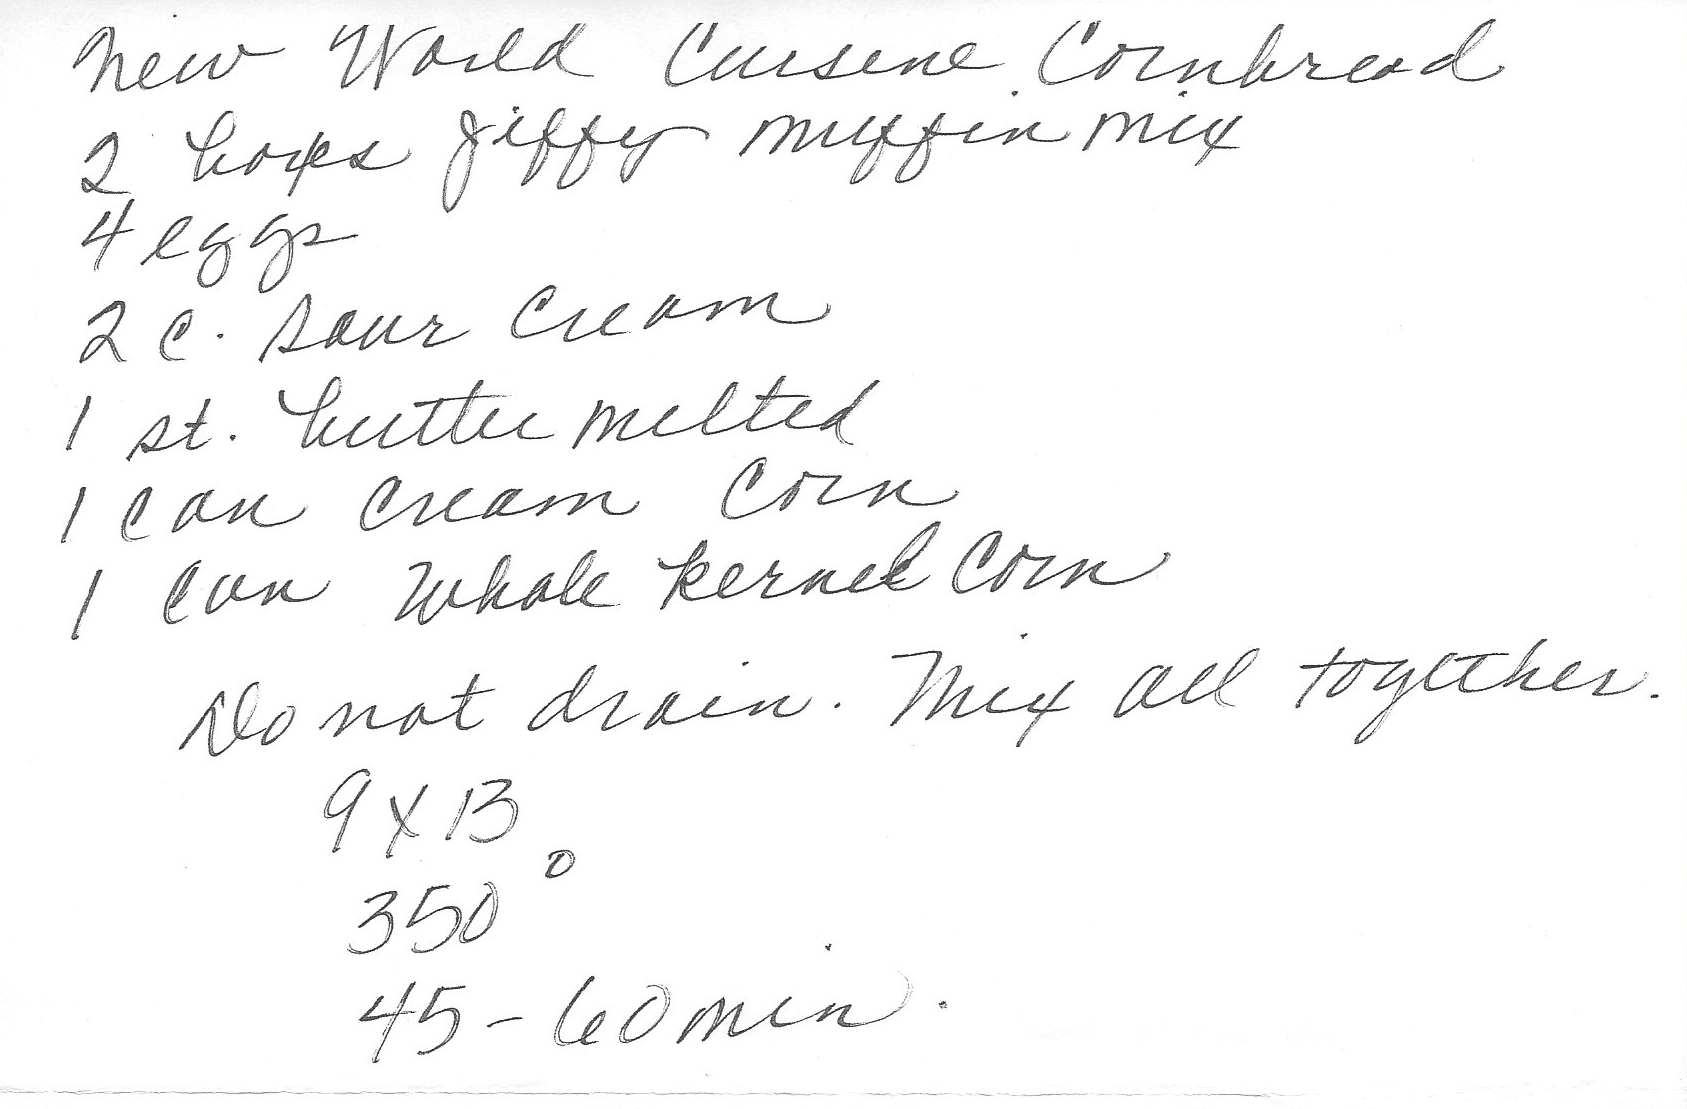 New World Cuisine Cornbread
2 boxes Jiffy muffin mix
4 eggs
2 c. sour cream
1 st. butter melted
1 can cream corn
1 can whole kernel corn
Do not drain. Mix all together.
9 x 13
350°
45-60 min.